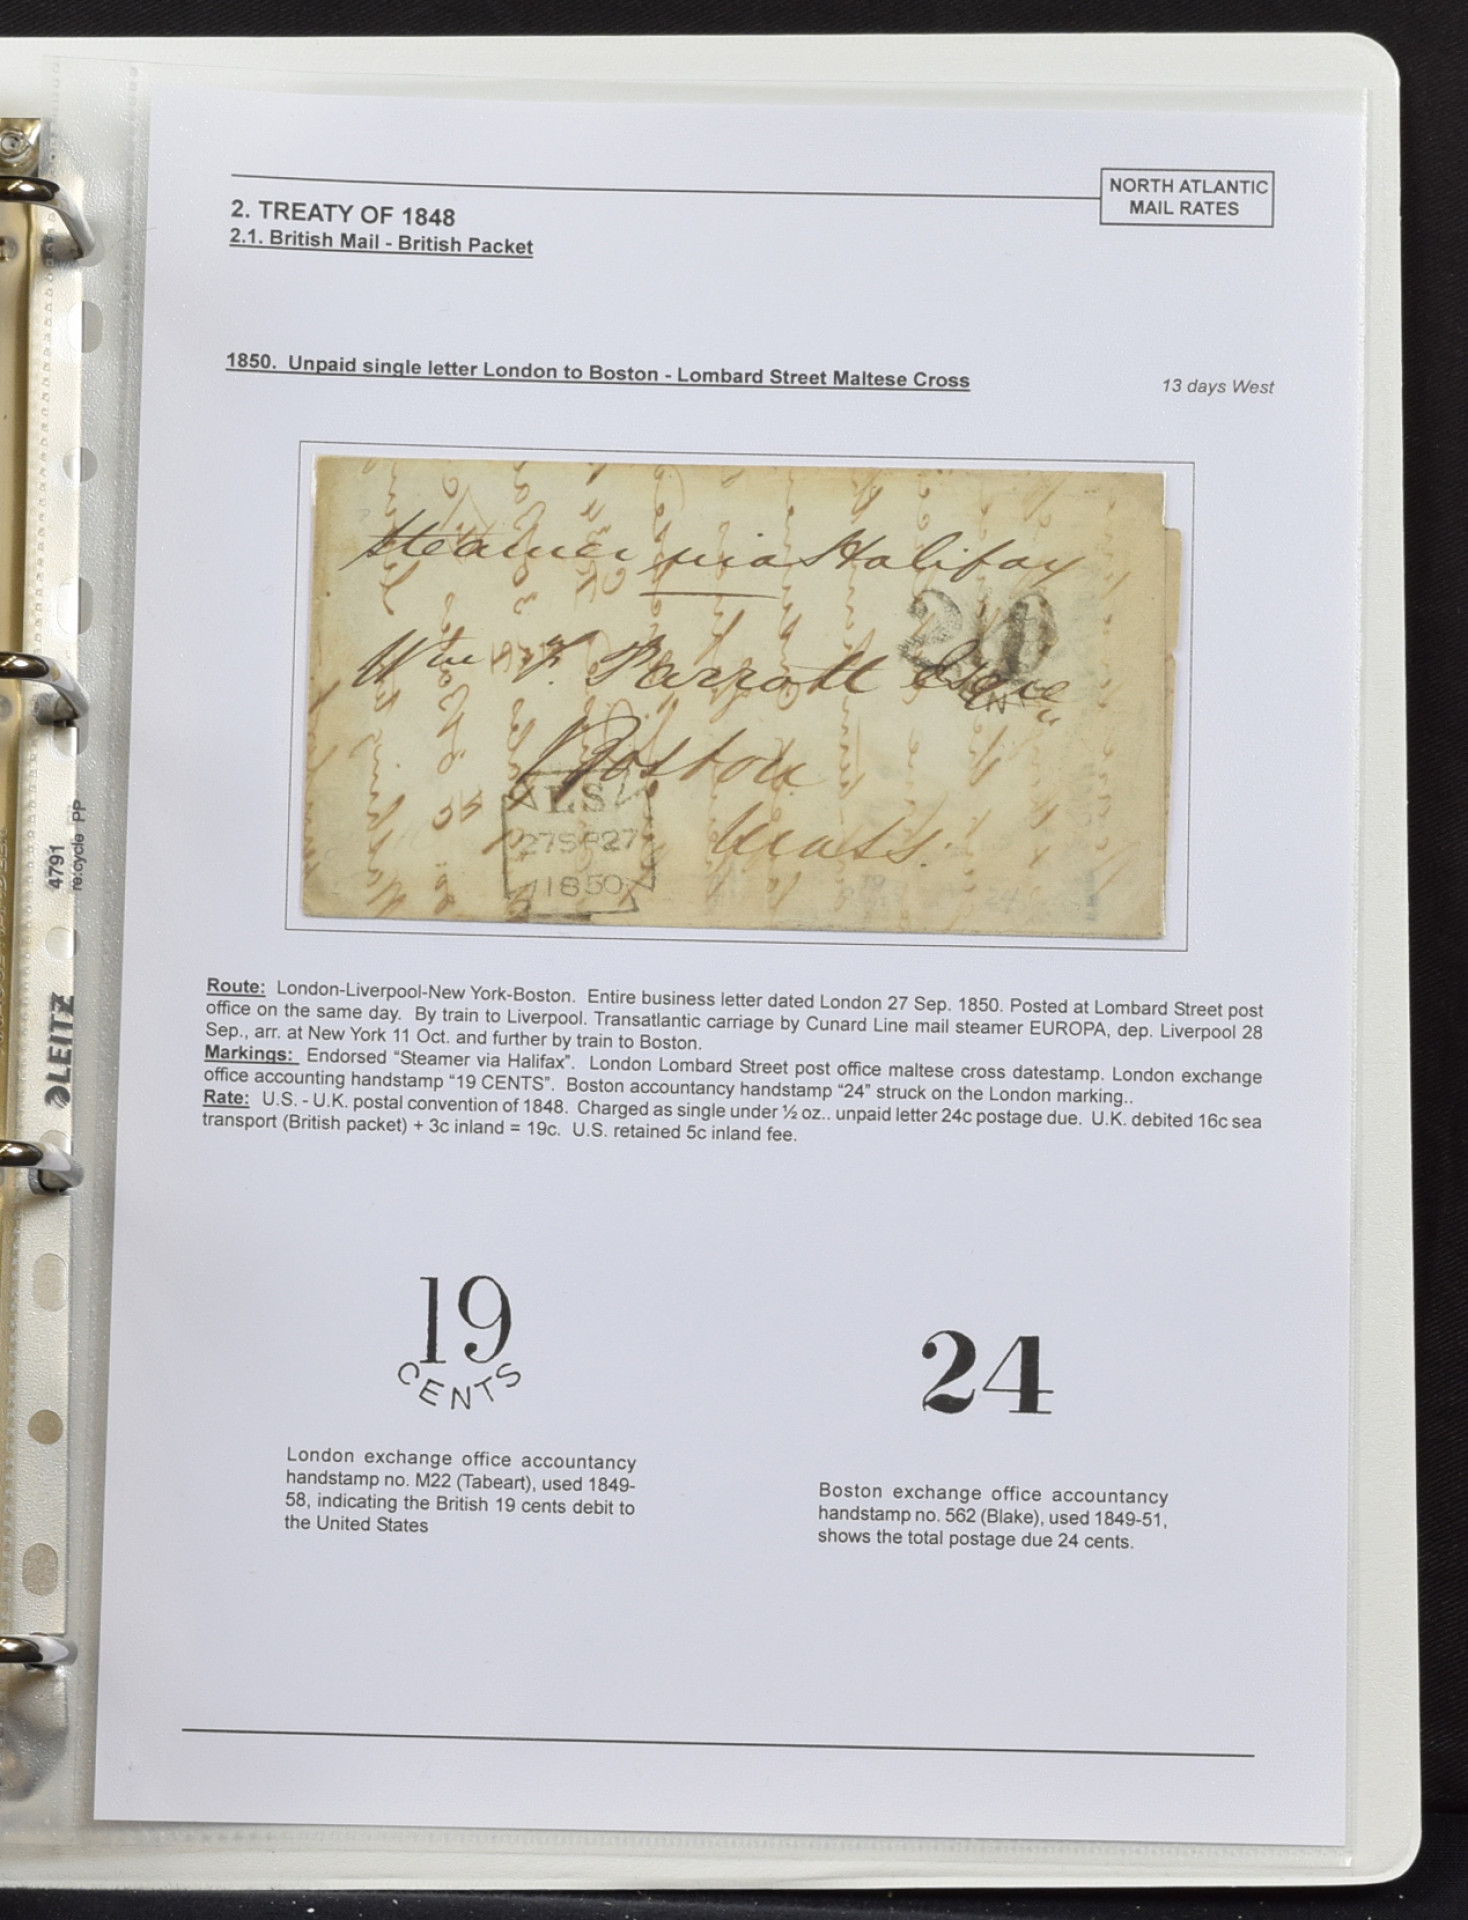 NORTH ATLANTIC
MAIL RATES
2. TREATY OF 1848
2.1. British Mail - British Packet
1850. Unpaid single letter London to Boston - Lombard Street Maltese Cross
13 days West
Steamer via Halifax
Wm F. Parrott Esqre
Boston
Mass.
LS
27SP27
1850
24
Route: London-Liverpool-New York-Boston. Entire business letter dated London 27 Sep. 1850. Posted at Lombard Street post
office on the same day. By train to Liverpool. Transatlantic carriage by Cunard Line mail steamer EUROPA, dep. Liverpool 28
Sep., arr. at New York 11 Oct. and further by train to Boston.
Markings: Endorsed “Steamer via Halifax”. London Lombard Street post office maltese cross datestamp. London exchange
office accounting handstamp “19 CENTS”. Boston accountancy handstamp “24” struck on the London marking..
Rate: U.S. - U.K. postal convention of 1848. Charged as single under ½ oz.. unpaid letter 24c postage due. U.K. debited 16c sea
transport (British packet) + 3c inland = 19c. U.S. retained 5c inland fee.
19
CENTS
24
London exchange office accountancy
handstamp no. M22 (Tabeart), used 1849-
58, indicating the British 19 cents debit to
the United States
Boston exchange office accountancy
handstamp no. 562 (Blake), used 1849-51,
shows the total postage due 24 cents.
LEITZ
4791
re:cycle PP